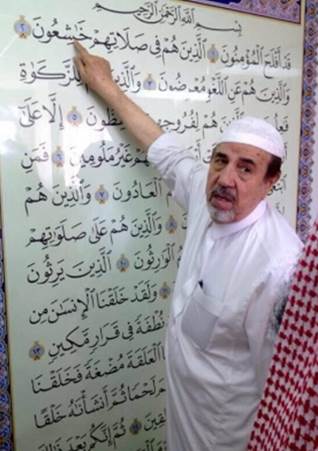 بِسْمِ اللَّهِ الرَّحْمَٰنِ الرَّحِيمِ
قَدْ أَفْلَحَ الْمُؤْمِنُونَ ١ الَّذِينَ هُمْ فِي صَلَاتِهِمْ خَاشِعُونَ ٢
وَالَّذِينَ هُمْ عَنِ اللَّغْوِ مُعْرِضُونَ ٣ وَالَّذِينَ لِلزَّكَوٰةِ
هُمْ لِفُرُوجِهِمْ ٥ إِلَّا عَلَىٰ
غَيْرُ مَلُومِينَ ٦ فَمَنِ
الْعَادُونَ ٧ وَالَّذِينَ هُمْ
وَالَّذِينَ هُمْ عَلَىٰ صَلَوَٰتِهِمْ
الْوَارِثُونَ ١٠ الَّذِينَ يَرِثُونَ
وَلَقَدْ خَلَقْنَا الْإِنسَٰنَ مِن
نُطْفَةً فِي قَرَارٍ مَّكِينٍ ١٣
الْعَلَقَةَ مُضْغَةً فَخَلَقْنَا
لَحْمًا ثُمَّ أَنشَأْنَٰهُ خَلْقًا
ثُمَّ إِنَّكُم بَعْدَ ذَٰلِكَ